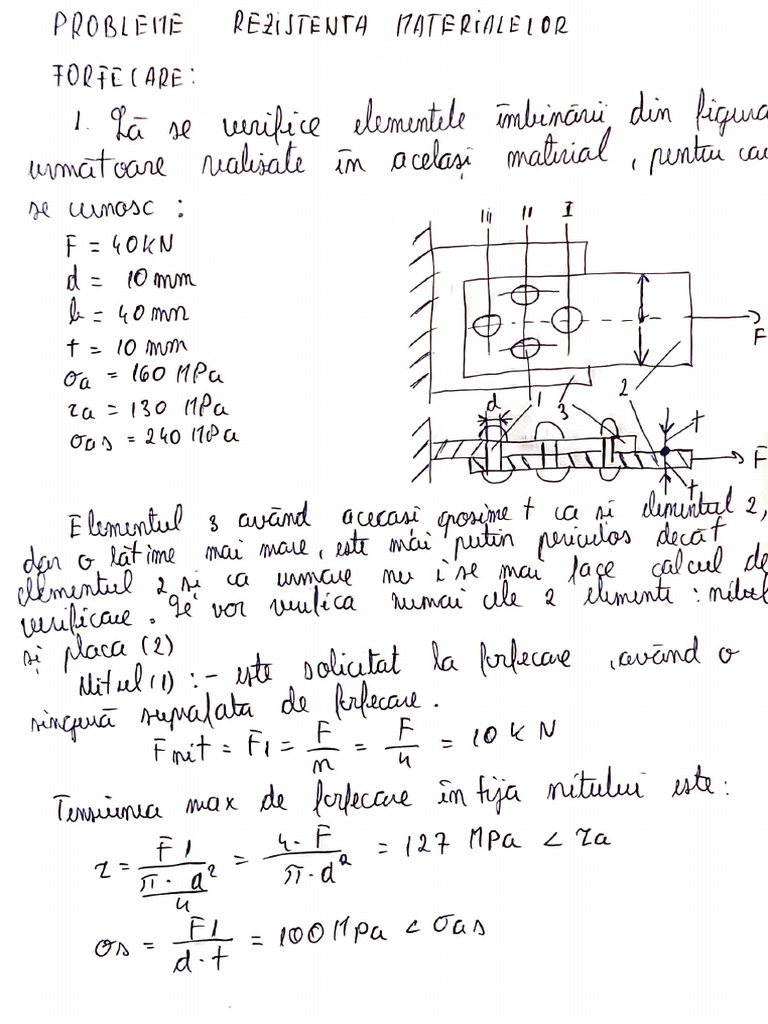 PROBLEME REZISTENTA MATERIALELOR
FORFECARE:
1. Să se verifice elementele îmbinării din figura
următoare realizate în același material, pentru car
se cunosc:
III II I
F = 40 kN
d = 10 mm
b = 40 mm
t = 10 mm
σa = 160 MPa
τa = 130 MPa
σas = 240 MPa
F
d 1 3 2 t
F
t
Elementul 3 având aceeași grosime t ca si elementul 2,
dar o lătime mai mare, este mai putin periculos decât
elementul 2 si ca urmare nu i se mai face calcul de
verificare. Se vor verifica numai cele 2 elemente: nitul
și placa (2)
Nitul (1) : - este solicitat la forfecare, având o
singură suprafata de forfecare.
Fnit = F1 = F/n = F/4 = 10 kN
Tensiunea max de forfecare în tija nitului este:
τ = F1/(π·d²/4) = 4·F/(π·d²) = 127 MPa < τa
σs = F1/(d·t) = 100 MPa < σas